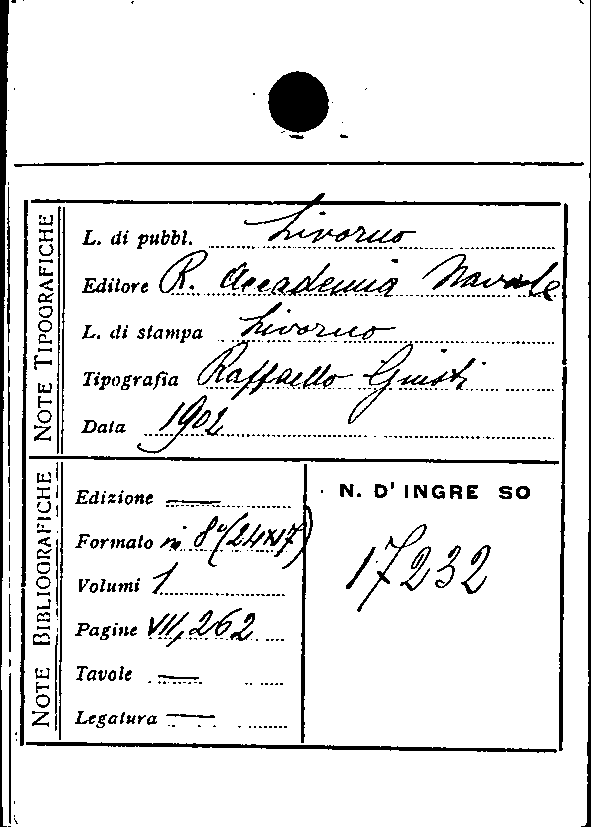 NOTE TIPOGRAFICHE
L. di pubbl. Livorno
Editore R. Accademia Navale
L. di stampa Livorno
Tipografia Raffaello Giusti
Data 1902
NOTE BIBLIOGRAFICHE
Edizione —
Formato in 8° (24×17)
Volumi 1
Pagine VII, 262
Tavole —
Legatura —
N. D'INGRE SO
17232